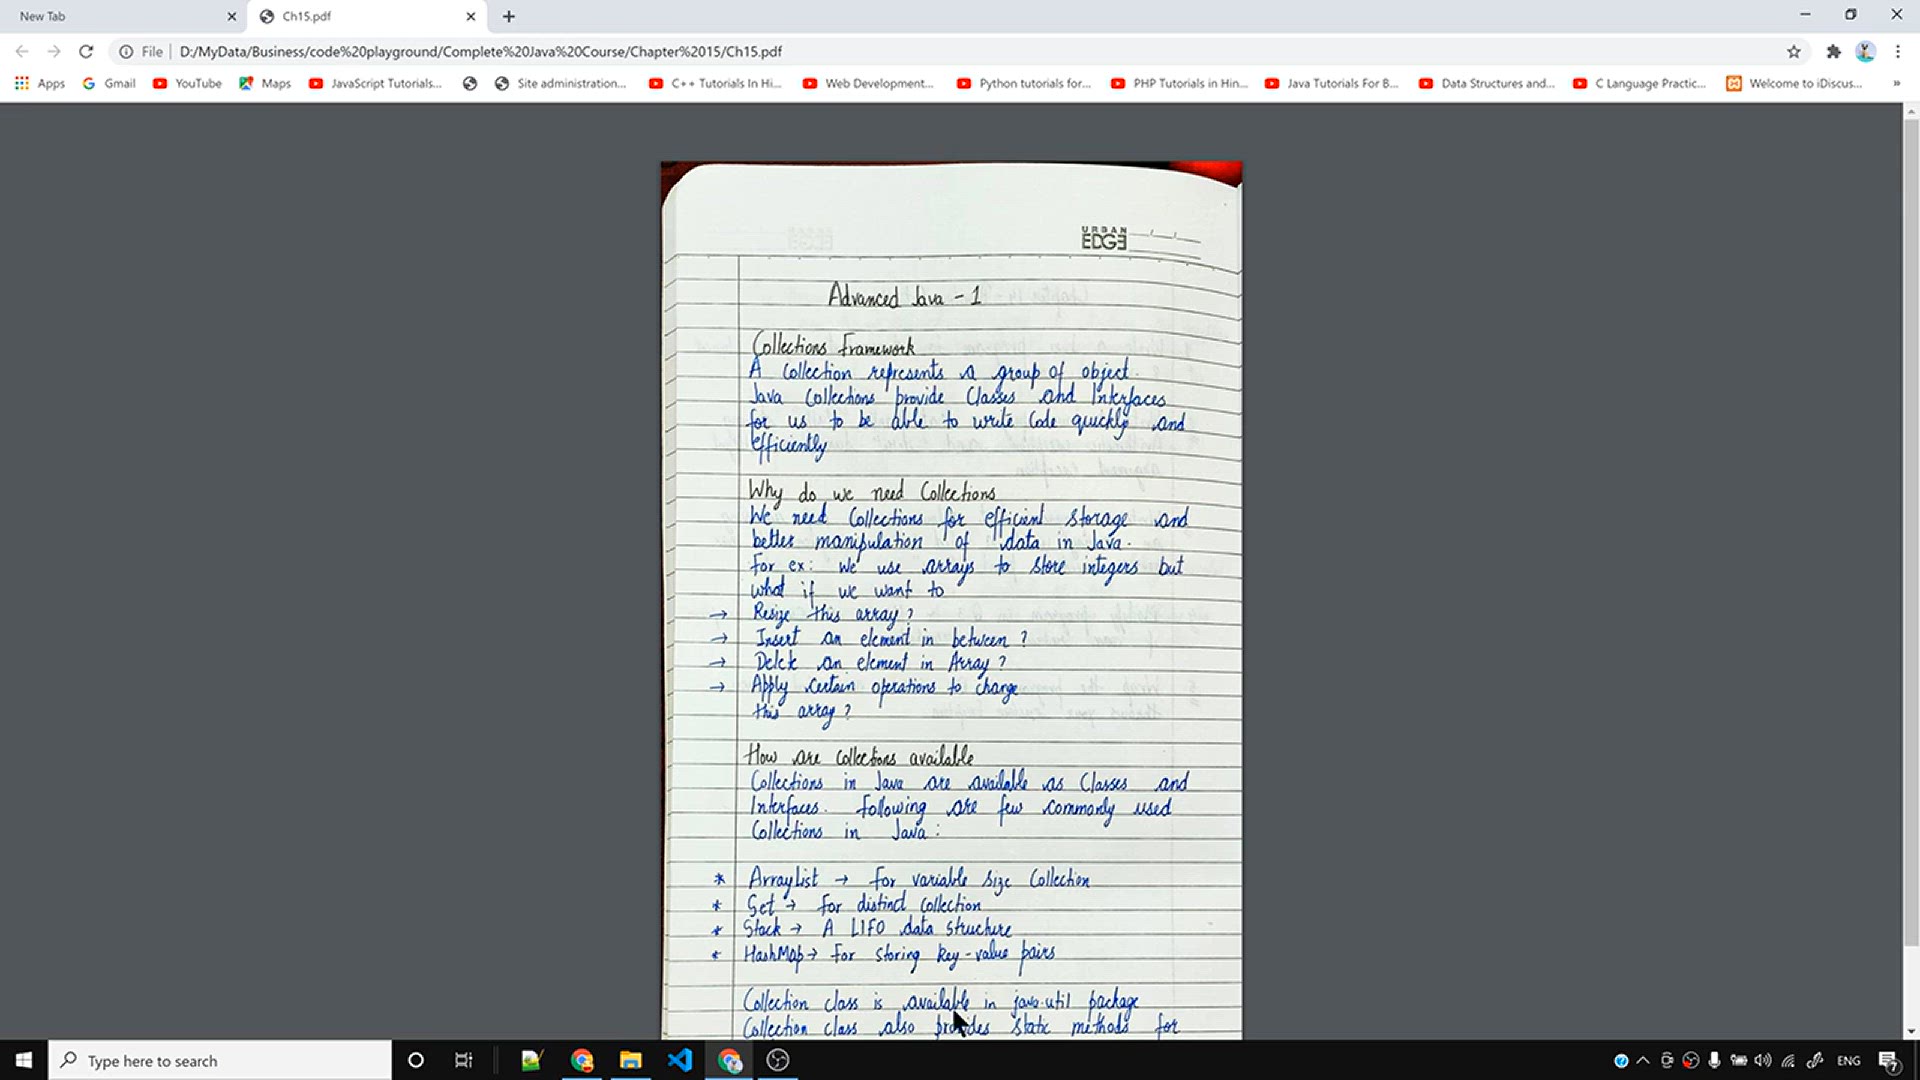 New Tab
Ch15.pdf
File | D:/MyData/Business/code%20playground/Complete%20Java%20Course/Chapter%2015/Ch15.pdf
Apps Gmail YouTube Maps JavaScript Tutorials... Site administration... C++ Tutorials In Hi... Web Development... Python tutorials for... PHP Tutorials in Hin... Java Tutorials For B... Data Structures and... C Language Practic... Welcome to iDiscus... »
URBAN
EDGE
Advanced Java - 1
Collections Framework
A Collection represents a group of object.
Java Collections provide Classes and Interfaces
for us to be able to write Code quickly and
efficiently
Why do we need Collections
We need Collections for efficient storage and
better manipulation of data in Java.
For ex: We use arrays to store integers but
what if we want to
→ Resize this array?
→ Insert an element in between?
→ Delete an element in Array?
→ Apply certain operations to change
this array?
How are collections available
Collections in Java are available as Classes and
Interfaces. Following are few commonly used
Collections in Java:
* ArrayList → For variable size Collection
* Set → For distinct Collection
* Stack → A LIFO data structure
* HashMap → For storing key-value pairs
Collection class is available in java.util package
Collection class also provides static methods for
Type here to search
ENG
7